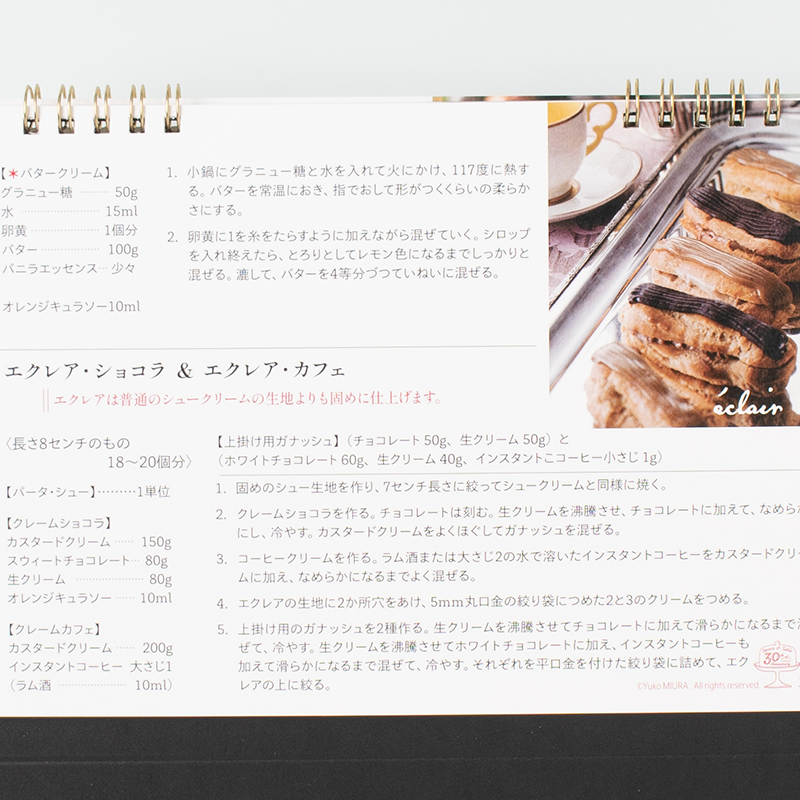 【*バタークリーム】
グラニュー糖 …… 50g
水 …………… 15ml
卵黄 ………… 1個分
バター ……… 100g
バニラエッセンス… 少々
オレンジキュラソー10ml
1. 小鍋にグラニュー糖と水を入れて火にかけ、117度に熱す
る。バターを常温におき、指でおして形がつくくらいの柔らか
さにする。
2. 卵黄に1を糸をたらすように加えながら混ぜていく。シロップ
を入れ終えたら、とろりとしてレモン色になるまでしっかりと
混ぜる。漉して、バターを4等分づつていねいに混ぜる。
éclair
エクレア・ショコラ & エクレア・カフェ
エクレアは普通のシュークリームの生地よりも固めに仕上げます。
〈長さ8センチのもの
18〜20個分〉
【パータ・シュー】………1単位
【クレームショコラ】
カスタードクリーム …… 150g
スウィートチョコレート… 80g
生クリーム ………… 80g
オレンジキュラソー …… 10ml
【クレームカフェ】
カスタードクリーム …… 200g
インスタントコーヒー 大さじ1
(ラム酒 ………… 10ml)
【上掛け用ガナッシュ】(チョコレート 50g、生クリーム 50g) と
(ホワイトチョコレート 60g、生クリーム 40g、インスタントこコーヒー小さじ 1g)
1. 固めのシュー生地を作り、7センチ長さに絞ってシュークリームと同様に焼く。
2. クレームショコラを作る。チョコレートは刻む。生クリームを沸騰させ、チョコレートに加えて、なめらか
にし、冷やす。カスタードクリームをよくほぐしてガナッシュを混ぜる。
3. コーヒークリームを作る。ラム酒または大さじ2の水で溶いたインスタントコーヒーをカスタードクリー
ムに加え、なめらかになるまでよく混ぜる。
4. エクレアの生地に2か所穴をあけ、5mm丸口金の絞り袋につめた2と3のクリームをつめる。
5. 上掛け用のガナッシュを2種作る。生クリームを沸騰させてチョコレートに加えて滑らかになるまで混
ぜて、冷やす。生クリームを沸騰させてホワイトチョコレートに加え、インスタントコーヒーも
加えて滑らかになるまで混ぜて、冷やす。それぞれを平口金を付けた絞り袋に詰めて、エク
レアの上に絞る。
30
©Yuko MIURA All rights reserved